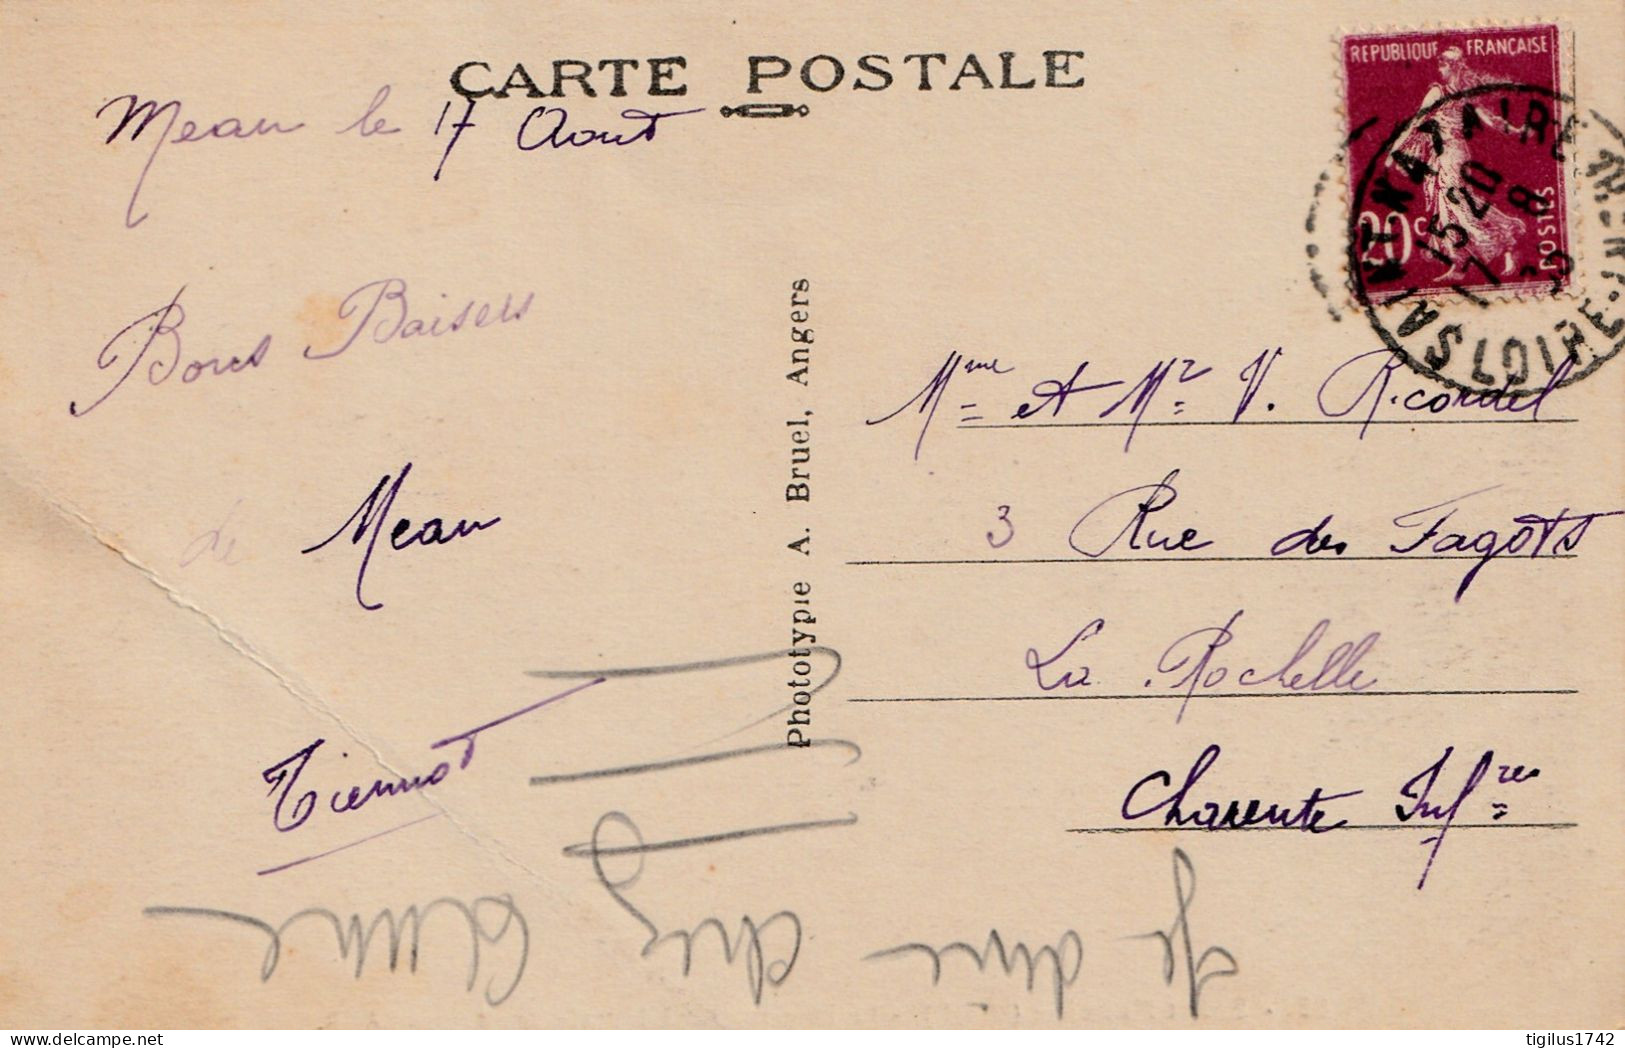 CARTE POSTALE
Mean le 17 Aout
Bons Baisers
de Mean
Tiennot
Phototypie A. Bruel, Angers
REPUBLIQUE FRANÇAISE
20c
POSTES
SAINT-NAZAIRE
15 20
17 8
LOIRE-INFRE
Mme et Mr V. Ricordel
3 Rue des Fagots
La Rochelle
Charente Infres
Je dine chez
tigilus1742